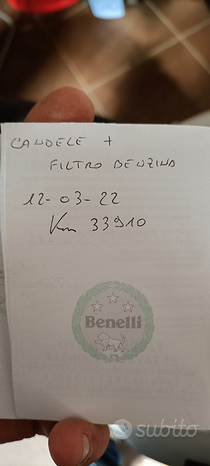 CANDELE +
FILTRO BENZINA
12-03-22
Km 33910
Benelli
subito